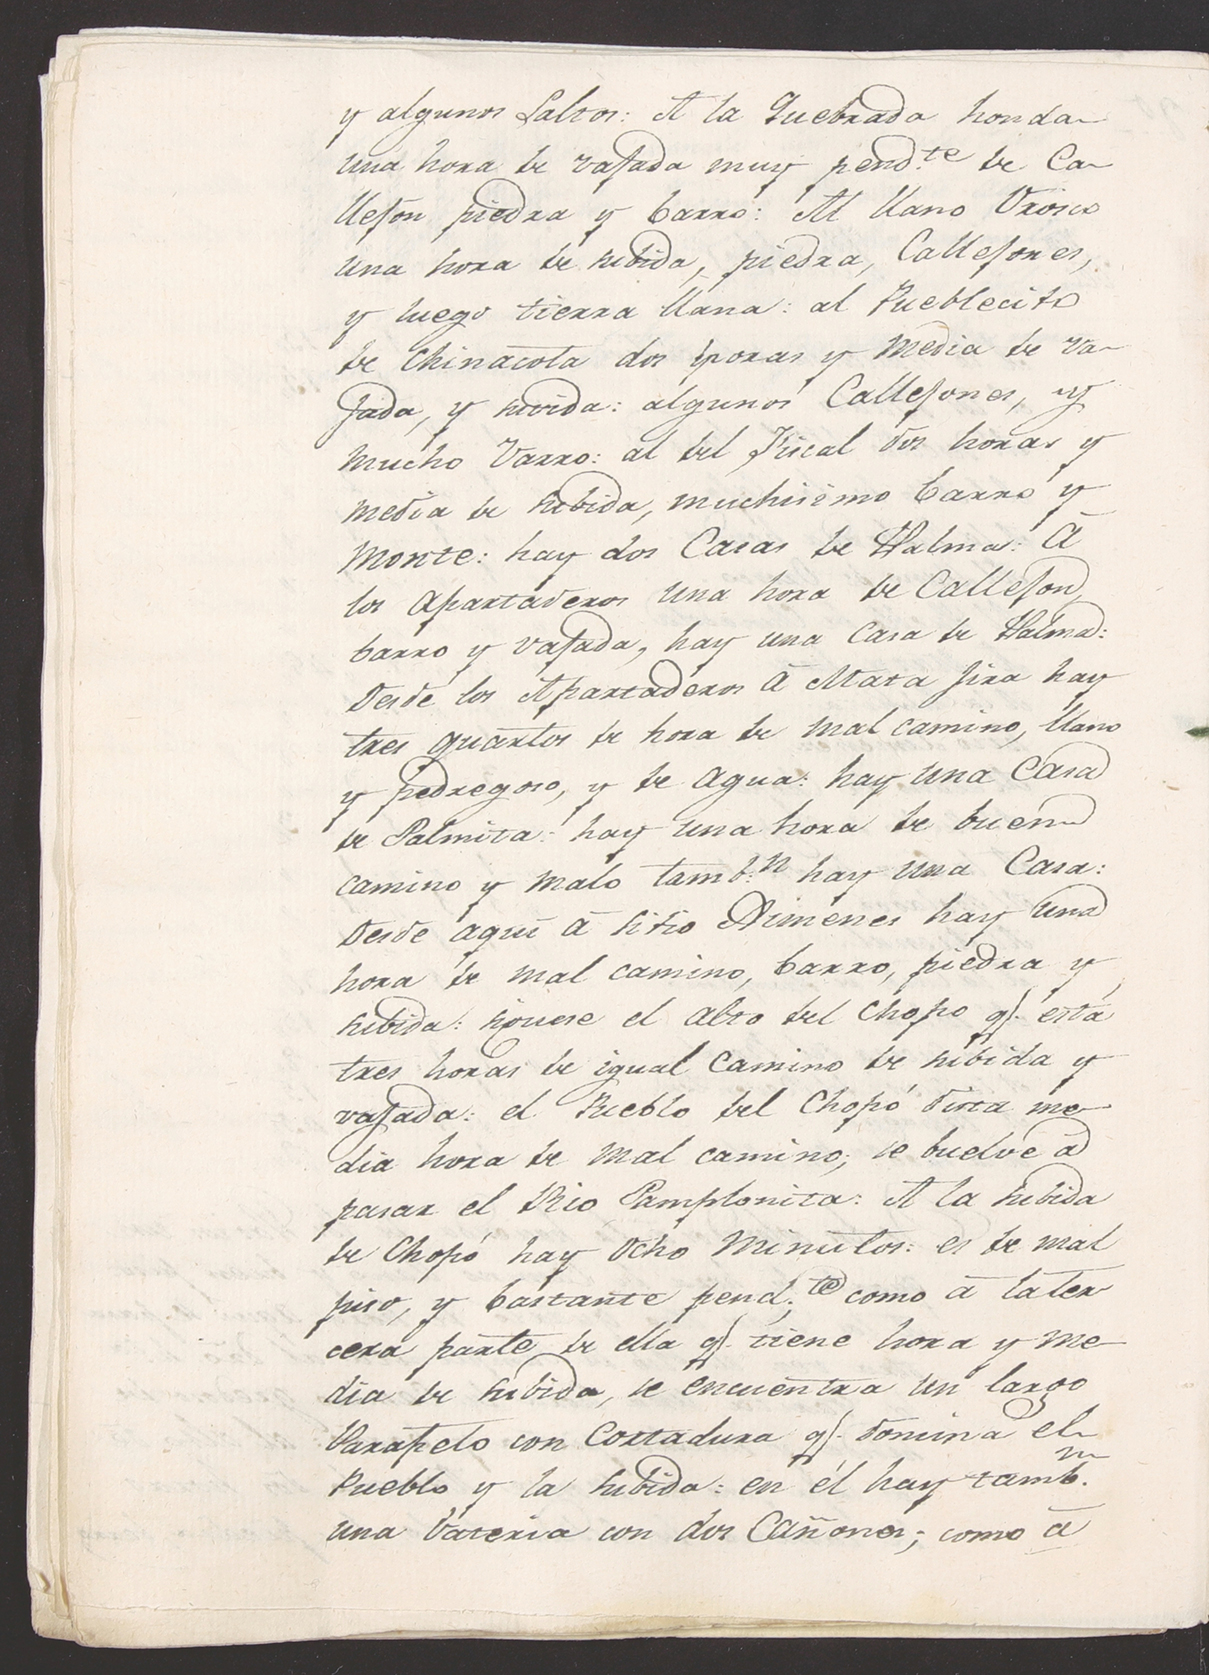 y algunos Saltos: A la Quebrada honda
una hora de vajada muy pend.te de Ca-
llejon piedra y barro: Al llano Orosco
una hora de subida, piedra, Callejones,
y luego tierra llana: al Pueblecito
de Chinacota dos horas y media de va-
jada, y suvida: algunos Callejones, y
mucho Varro: al del Fiscal dos horas y
media de subida, muchisimo barro y
Monte: hay dos Casas de Palma: A
los apartaderos una hora de Callejon,
barro y vajada, hay una casa de Palma:
Desde los Apartaderos á Mata Jira hay
tres quartos de hora de mal camino, llano
y pedregoso, y de agua: hay una Casa
de Palmita: hay una hora de buen
camino y malo tamb.n hay una Casa:
Desde aqui á Sitio Ximenes hay una
hora de mal camino, barro, piedra y
subida: siguese el alto del Chopo q.e está
tres horas de igual Camino de subida y
vajada: el Pueblo del Chopó dista me-
dia hora de mal camino; se buelve á
pasar el Rio Pamplonita: A la subida
de Chopó hay Ocho Minutos: es de mal
piso, y bastante pend.te como á la ter
cera parte de ella q.e tiene hora y me-
dia de subida, se encuentra un largo
Parapeto con Cortadura q.e domina el
Pueblo y la subida: en él hay tamb.n
una Vateria con dos Cañones; como á